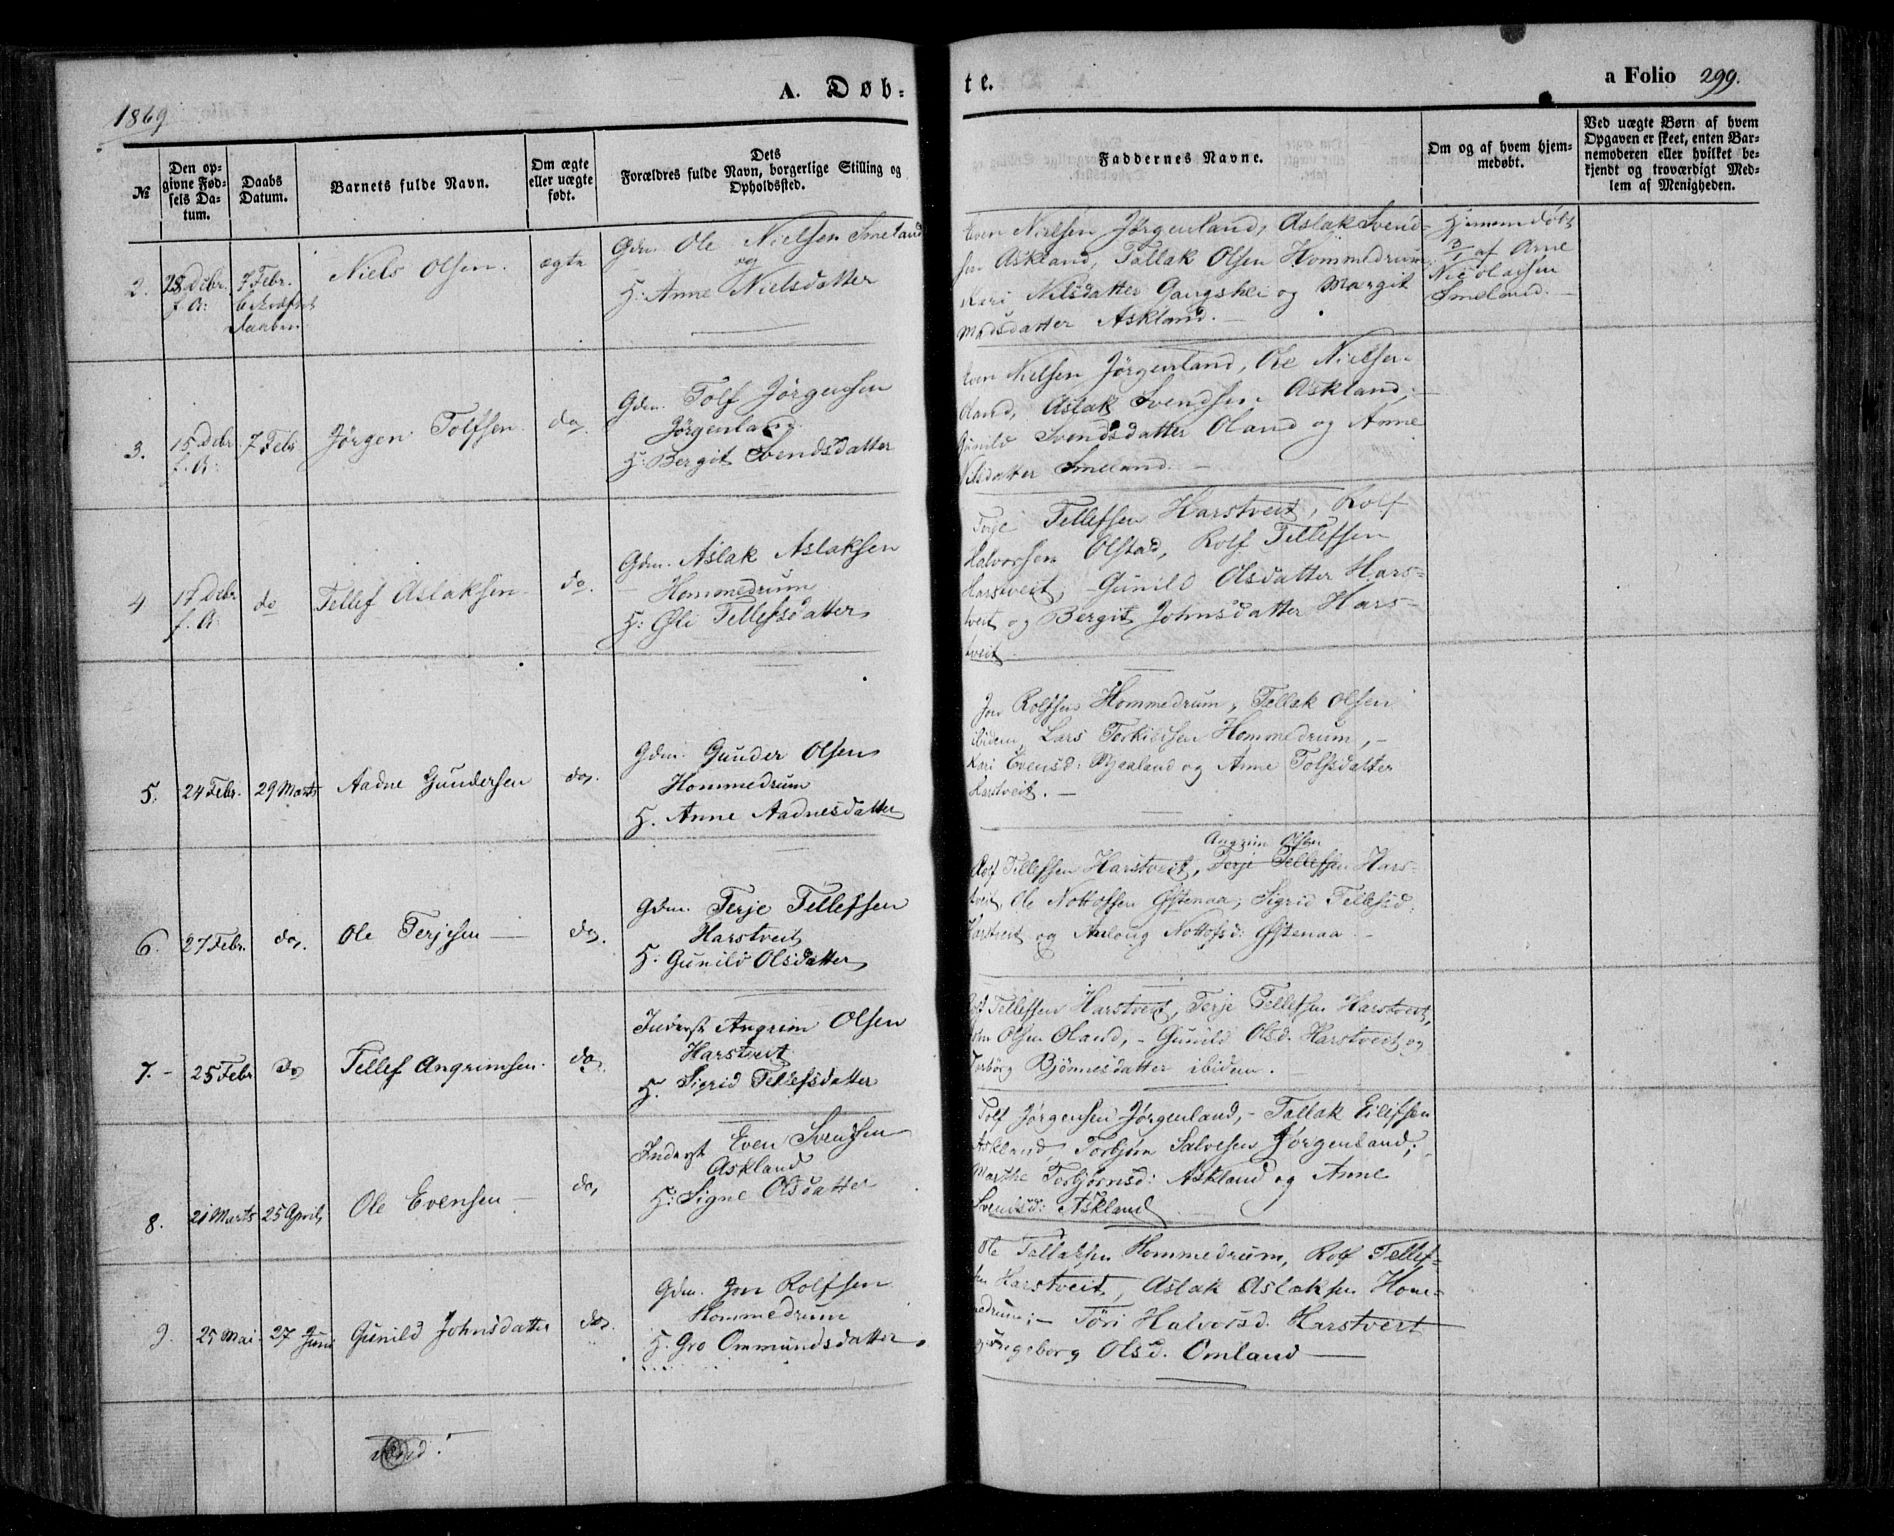 1869
A. Døb-
te.
a Folio 299.
№
Den op-
givne Fød-
sels Da-
tum.
Daabs
Datum.
Barnets fulde Navn.
Om ægte
eller uægte
født.
Dets
Forældres fulde Navn, borgerlige Stilling og
Opholdssted.
Faddernes Navne.
Om og af hvem hjem-
medøbt.
Ved uægte Børn af hvem
Opgaven er skeet, enten Bar-
nemoderen eller hvilket be-
kjendt og troværdigt Med-
lem af Menigheden.
2.
28 Debr.
f. A:
7 Febr.
Daaben
Niels Olsen.
ægte
Gdm. Ole Nielsen Smeland
og
H: Anne Nielsdatter
Even Nielsen Jörgenland, Aslak Svend-
sen Askland, Tallak Olsen Hommedrum,
Kari Nilsdatter Gangshei og Margit
Madsdatter Askland. -
Hjemmedøbt
3/1 af Arne
Nicolaisen
Smeland. -
3.
15 Debr
f. A:
7 Febr
Jørgen Tolfsen.
do,
Gdm. Tolf Jørgensen
Jørgenland
H: Bergit Svendsdatter
Even Nielsen Jørgenland, Ole Nielsen
Oland, Aslak Svendsen Askland, -
Gunild Svendsdatter Oland og Anne
Nilsdatter Smeland. -
4
17 Debr
f. A:
do
Tellef Aslaksen
do.
Gdm. Aslak Aslaksen
Hommedrum
H: Øli Tellefsdatter
Terje Tellefsen Harstveit, Rolf
Halvorsen Olstad, Rolf Tellefsen
Harstveit, - Gunild Olsdatter Hars-
tveit og Bergit Johnsdatter Hars-
tveit
5.
24 Febr.
29 Marts
Aadne Gundersen
do.
Gdm. Gunder Olsen
Hommedrum
H. Anne Aadnesdatter
Jon Rolfsen Hommedrum, Tallak Olsen
ibidem Lars Torkildsen Hommedrum, -
Kari Evensd: Mjaaland og Anne Tolfsdatter
Harstveit. -
6.
27 Febr.
do,
Ole Terjesen -
do,
Gdm. Terje Tellefsen
Harstveit
H. Gunild Olsdatter
Angrim Olsen
Rolf Tellefsen Harstveit, Terje Tellefsen Hars-
tveit, Ole Nottolfsen Østenaa, Sigrid Tellefsd:
Harstveit og Aslaug Nottofsd: Østenaa -
7. -
25 Febr
do
Tellef Angrimsen.
do,
Inderst Angrim Olsen
Harstveit
H. Sigrid Tellefsdatter
Rolf Tellefsen Harstveit, Terje Tellefsen Harstveit,
John Olsen Oland, - Gunild Olsd. Harstveit og
Torbörg Bjönnesdatter ibidem.
8.
21 Marts
25 April,
Ole Evensen -
do,
Inderst Even Svendsen
Askland
H: Signe Olsdatter
Tolf Jørgensen Jørgenland, - Tallak Eilefsen
Askland, Torbjørn Salvesen Jørgenland; -
Marthe Torbjørnsd: Askland og Anne
Svendsd: Askland
9.
25 Mai
27 Juni
Gunild Johnsdatter
do,
Gdm. Jon Rolfsen
Hommedrum
H. Gro Ommundsdatter
Ole Tallaksen Hommedrum, Rolf Tellef-
sen Harstveit, Aslak Aslaksen Home-
medrum; - Töri Halvorsd. Harstveit
og Ingeborg Olsd. Omland -